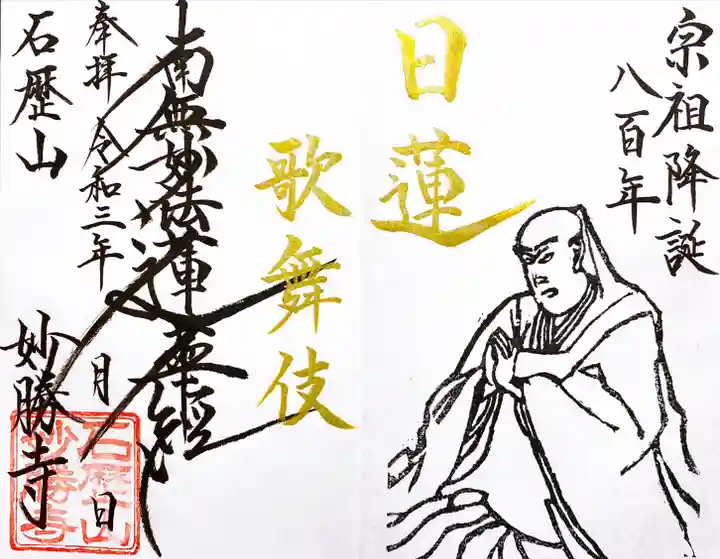 宗祖降誕
八百年
日蓮
歌舞伎
南無妙法蓮華経
奉拝 令和三年 月 日
石歴山
妙勝寺
石歴山
妙勝寺